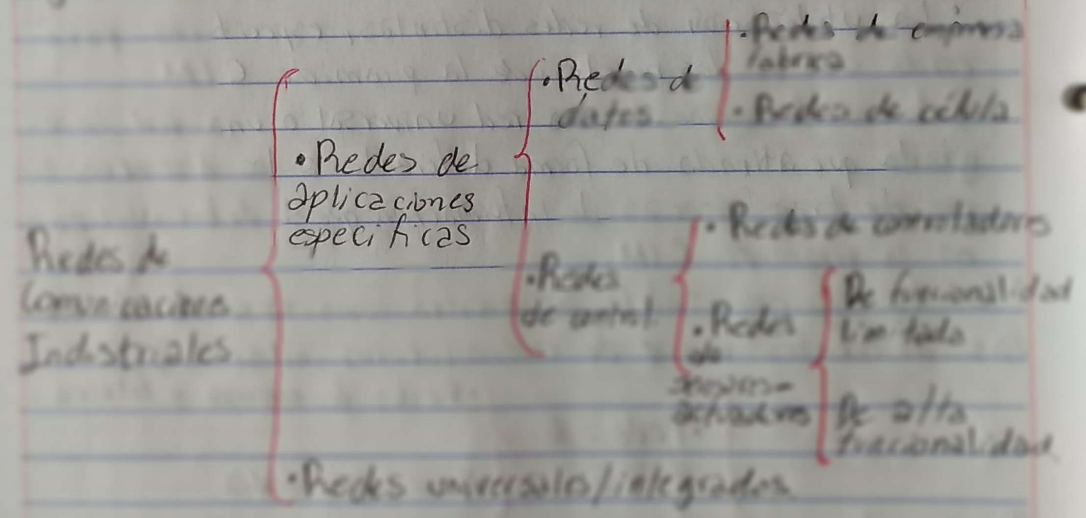 Redes de
Comunicaciones
Industriales
• Redes de
aplicaciones
especificas
• Redes d
datos
• Redes de empresa
fabrica
• Redes de célula
• Redes
de control
• Redes de controladores
• Redes
de
sensores-
actuadores
De funcionalidad
limitada
De alta
funcionalidad
• Redes universales/integradas